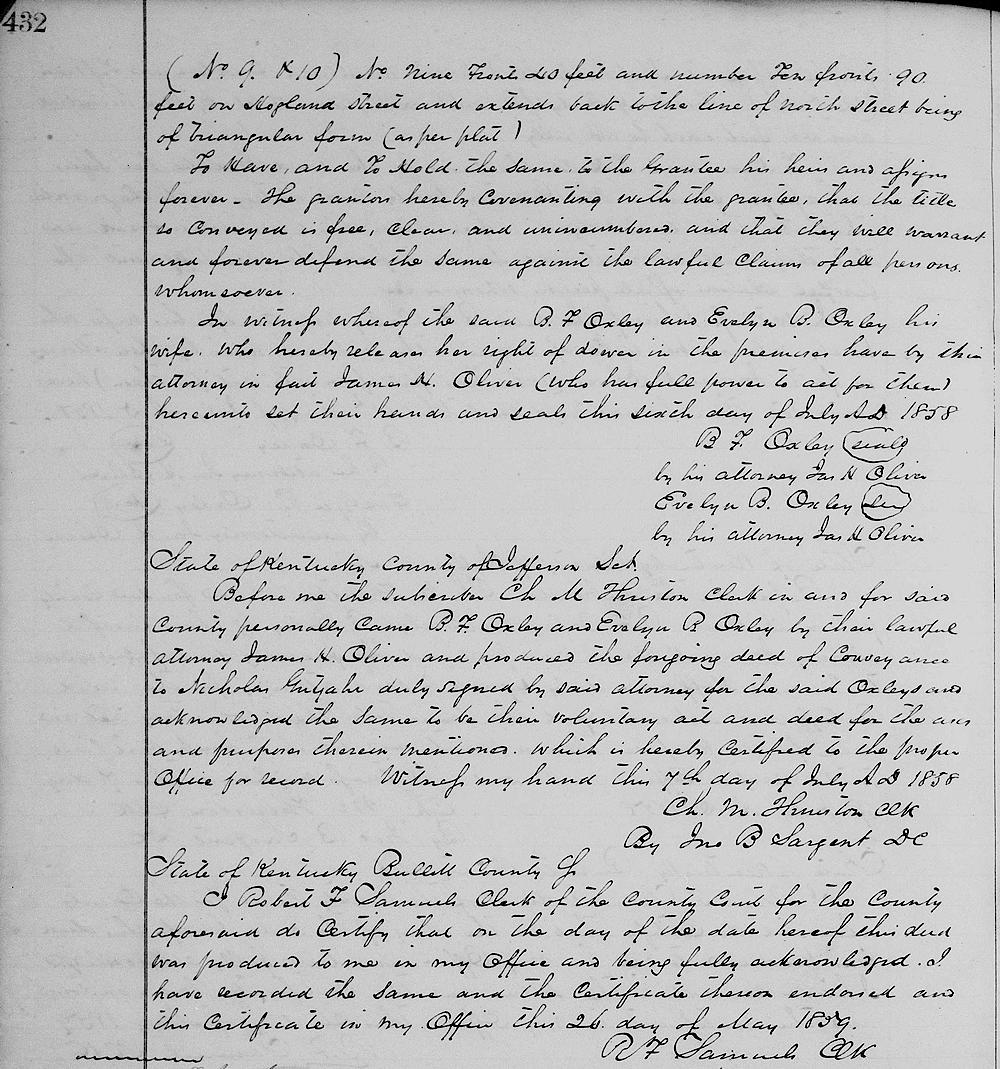 432
( No. 9. & 10 ) No. Nine Fronts 40 feet and number Ten fronts 90
feet on Hogland street and extends back to the line of north street being
of triangular form (as per plat )
To Have, and To Hold the same to the Grantee his heirs and assigns
forever - The grantors hereby Covenanting with the grantee, that the title
so Conveyed is free, Clear, and unincumbered, and that they will warrant
and forever defend the same against the lawful Claims of all persons
whomsoever.
In witness whereof the said B. F Oxley and Evelyn B. Oxley his
wife. who hereby releases her right of dower in the premises have by their
attorney in fact James H. Oliver (who has full power to act for them)
hereunto set their hands and seals this sixth day of July A D 1858
B F. Oxley (seal)
by his attorney Jas H Oliver
Evelyn B. Oxley
by his attorney Jas H Oliver
State of Kentucky County of Jefferson Sct
Before me the subscriber Ch M Thruston Clerk in and for said
County personally Came B. F. Oxley and Evelyn B Oxley by their lawful
attorney James H. Oliver and produced the forgoing deed of Conveyance
to Nicholas Gutjahr duly signed by said attorney for the said Oxleys and
acknowledged the Same to be their voluntary act and deed for the uses
and purposes therein mentioned. which is hereby Certified to the proper
Office for record. Witness my hand this 7th day of July A D 1858
Ch. M. Thruston Clk
By Jno B Sargent DC
State of Kentucky Bullitt County
I Robert F Samuels Clerk of the County Court for the County
aforesaid do Certify that on the day of the date hereof this deed
was produced to me in my Office and being fully acknowledged. I
have recorded the same and the Certificate thereon endorsed and
this Certificate in my Office this 26. day of May 1859.
R F Samuels Clk